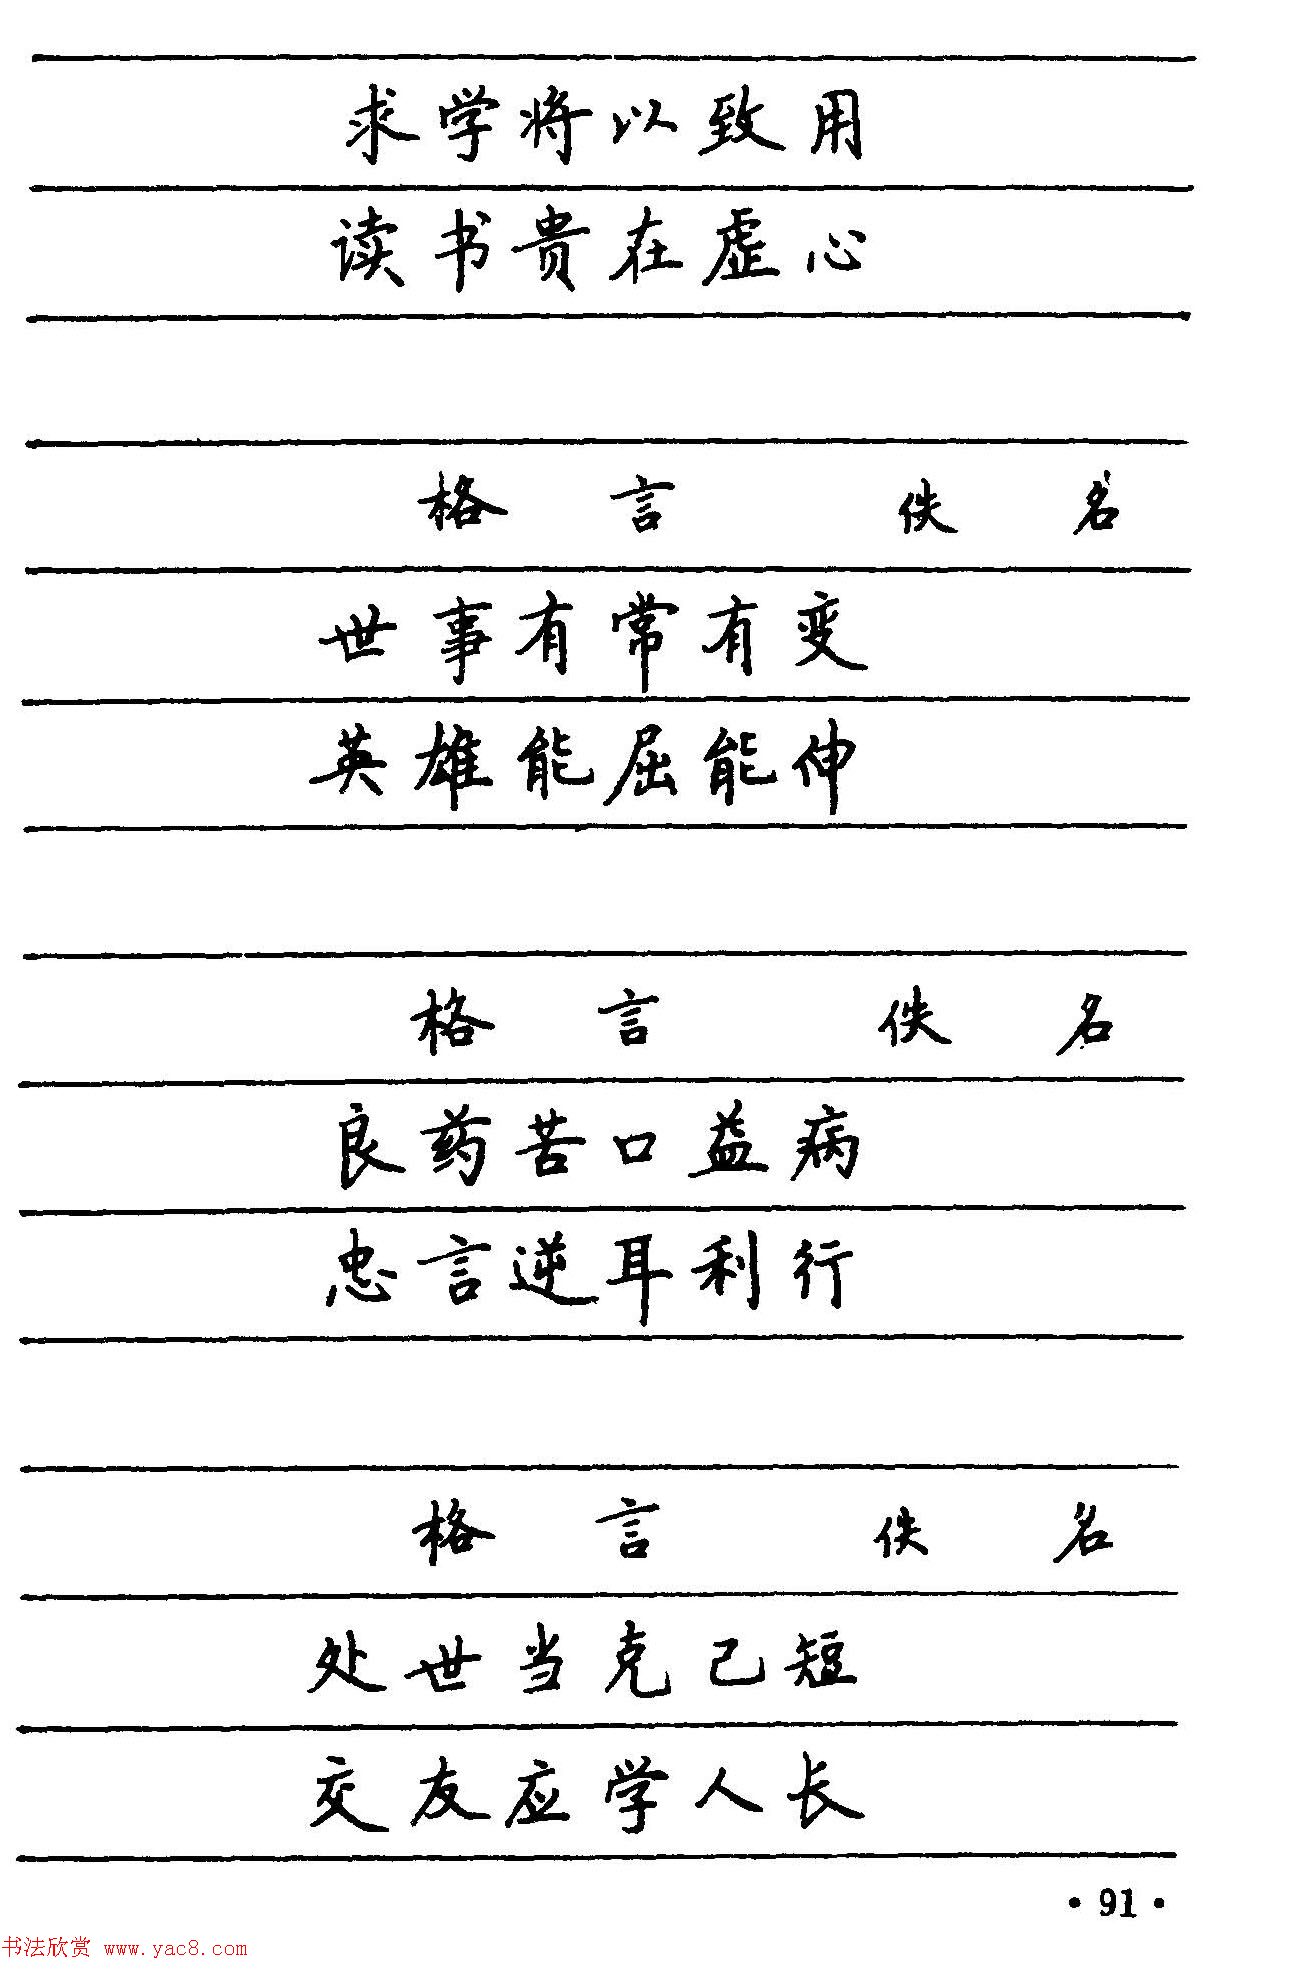 求学将以致用
读书贵在虚心
格言 佚名
世事有常有变
英雄能屈能伸
格言 佚名
良药苦口益病
忠言逆耳利行
格言 佚名
处世当克己短
交友应学人长
·91·
书法欣赏 www.yac8.com